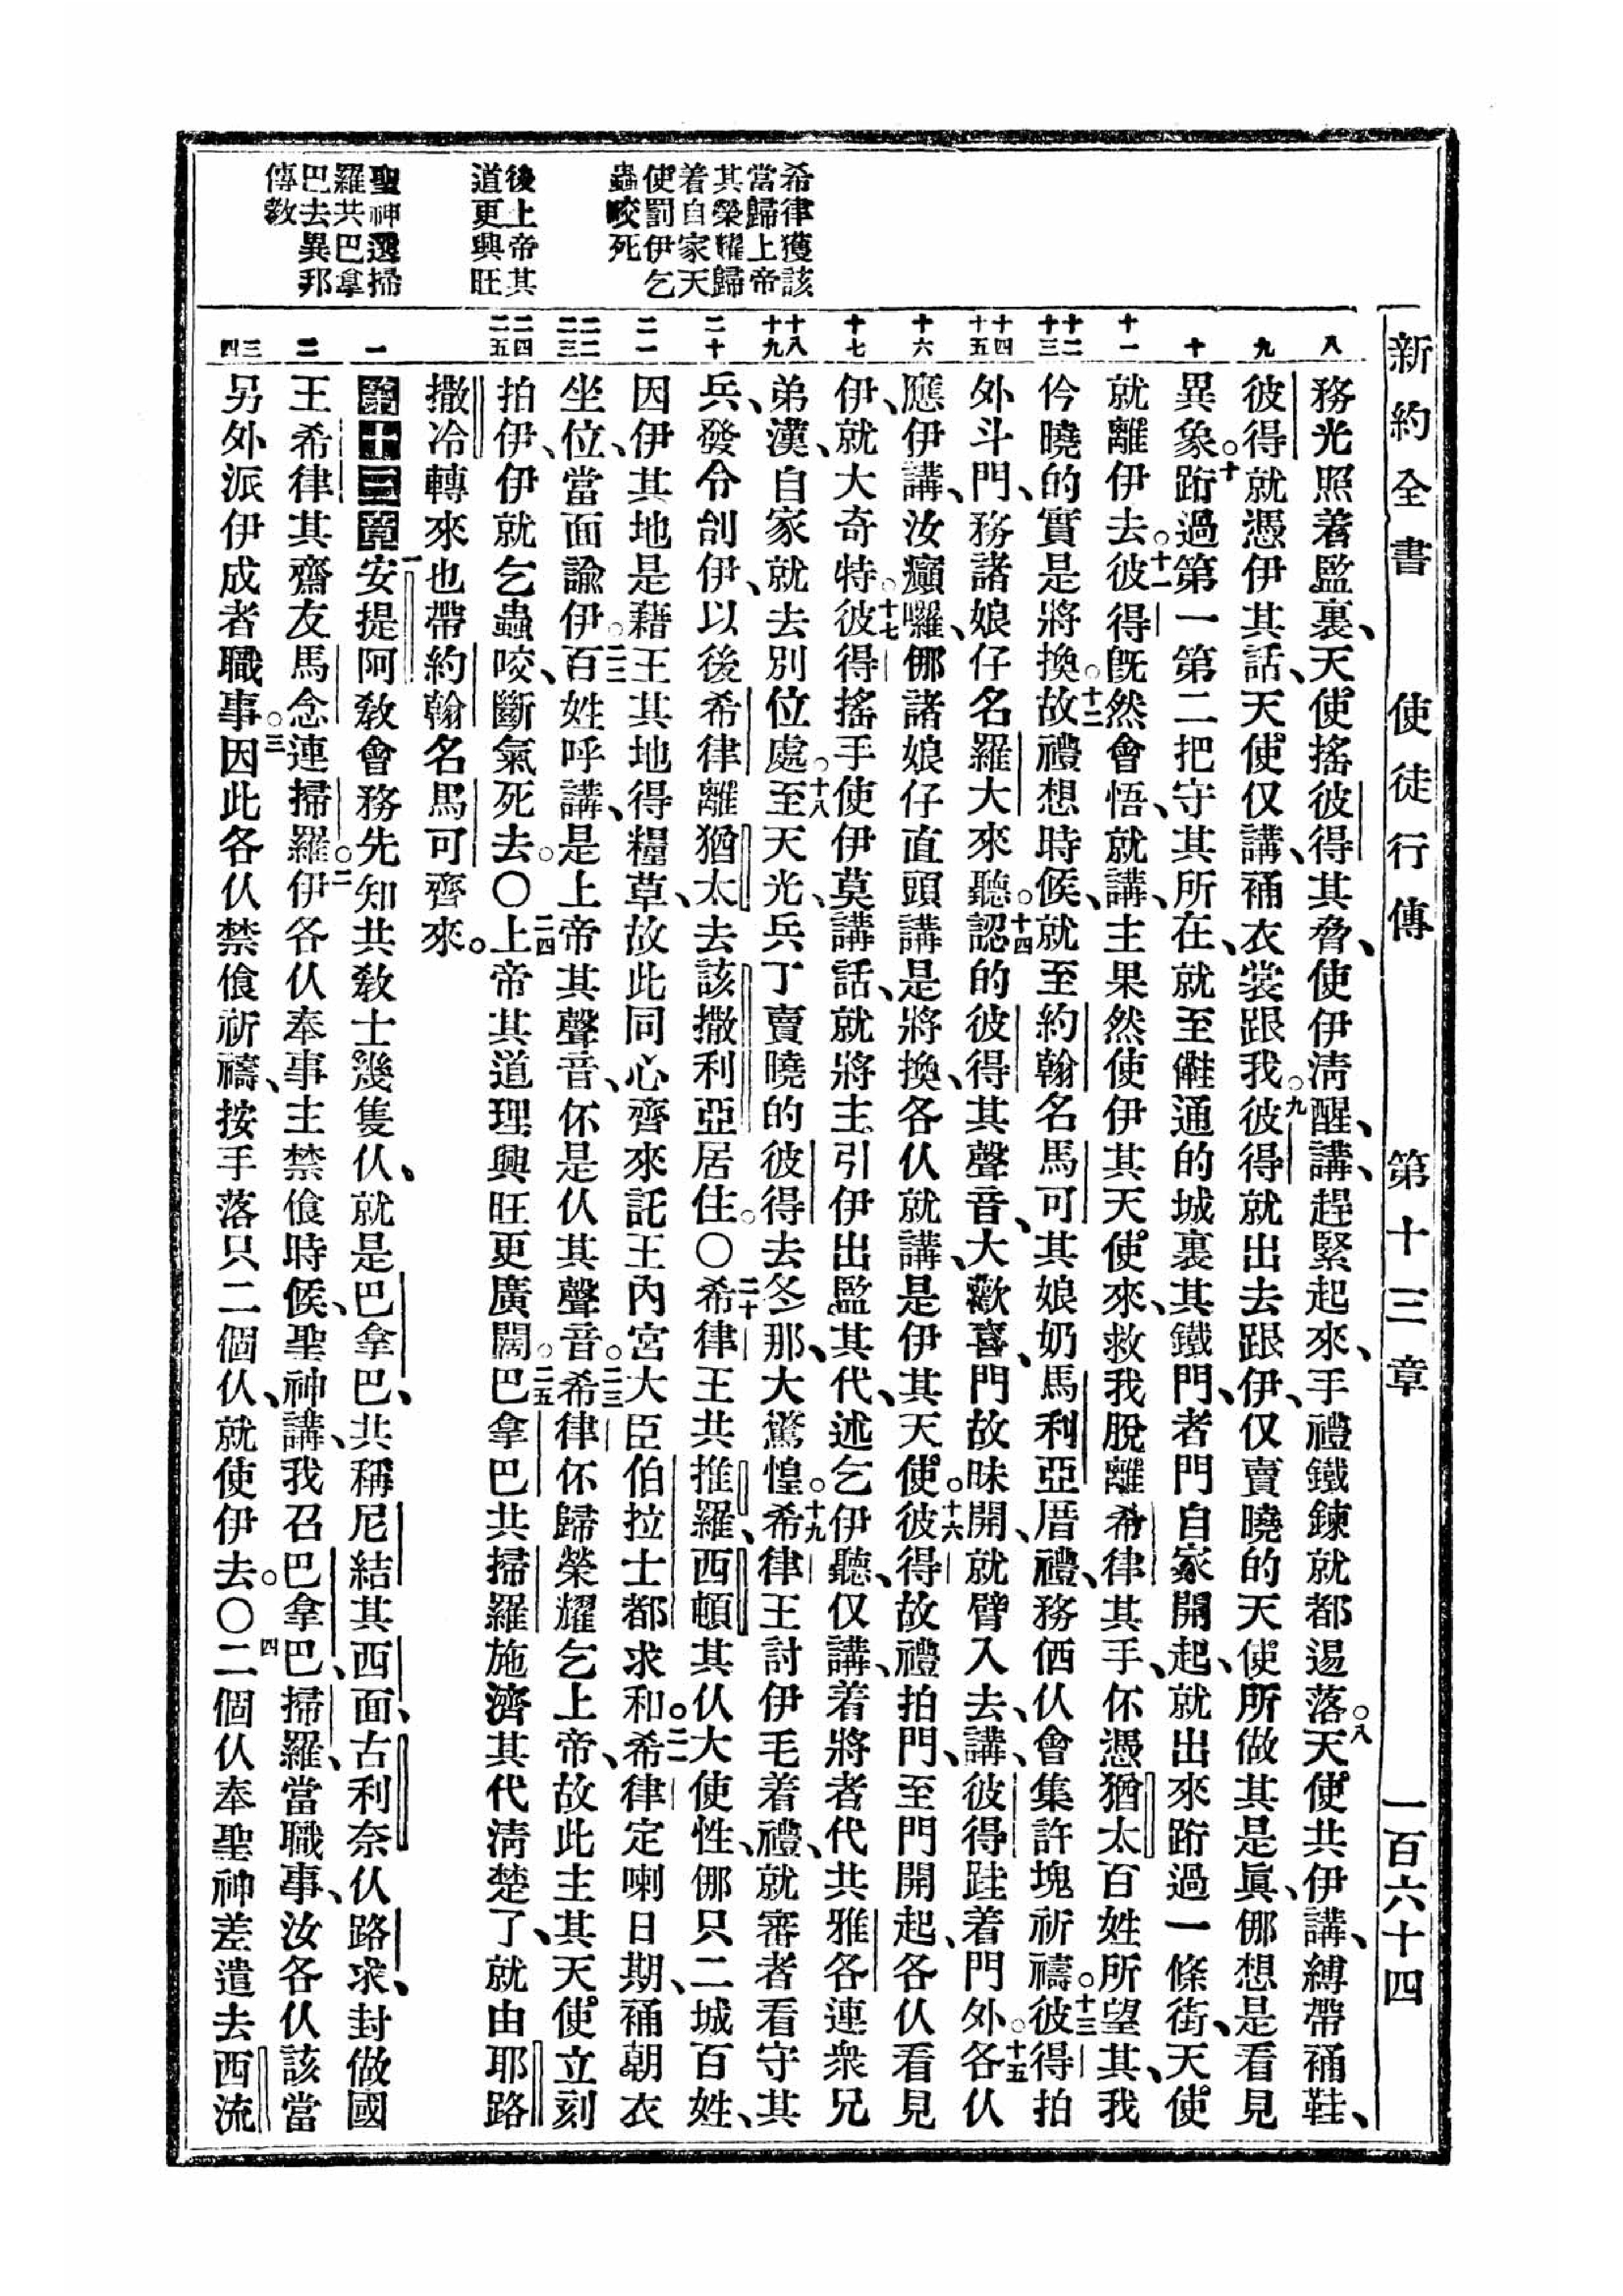 新約全書 使徒行傳 第十三章 一百六十四
希律獲該
當歸上帝
其榮耀歸
着自家天
使罰伊乞
蟲咬死
後上帝其
道更興旺
聖神選掃
羅共巴拿
巴去異邦
傳敎
八
九
十
十一
十二 十三
十四 十五
十六
十七
十八 十九
二十
二一
二二 二三
二四 二五
一
二
三 四
務光照着監裏、天使搖彼得其脅、使伊淸醒、講、趕緊起來、手禮鐵鍊就都逿落。八天使共伊講、縛帶𧙕鞋、
彼得就憑伊其話、天使仅講、𧙕衣裳跟我。九彼得就出去跟伊、仅賣曉的天使所做其是眞、倻想是看見
異象。十跔過第一第二把守其所在、就至𠍁通的城裏其鐵門、者門自家開起、就出來跔過一條街、天使
就離伊去。十一彼得旣然會悟、就講、主果然使伊其天使來、救我脫離希律其手、伓憑猶太百姓所望其、我
伶曉的實是將換。十二故禮想時候、就至約翰名馬可其娘奶馬利亞厝禮、務価仈會集許塊祈禱。十三彼得拍
外斗門、務諸娘仔名羅大來聽。十四認的彼得其聲音、大歡喜、門故昧開、就臂入去、講、彼得跬着門外。十五各仈
應伊講、汝癲囉、倻諸娘仔直頭講是將換、各仈就講、是伊其天使。十六彼得故禮拍門、至門開起、各仈看見
伊、就大奇特。十七彼得搖手使伊莫講話、就將主引伊出監其代、述乞伊聽、仅講、着將者代共雅各連衆兄
弟漢、自家就去別位處。十八至天光、兵丁賣曉的彼得去冬那、大驚惶。十九希律王討伊毛着禮、就審者看守其
兵、發令刣伊、以後希律離猶太去該撒利亞居住。〇二十希律王共推羅、西頓其仈大使性、倻只二城百姓、
因伊其地是藉王其地得糧草、故此同心齊來託王內宮大臣伯拉士都求和。二一希律定喇日期、𧙕朝衣
坐位、當面諭伊。二二百姓呼講、是上帝其聲音、伓是仈其聲音。二三希律伓歸榮耀乞上帝、故此主其天使立刻
拍伊、伊就乞蟲咬、斷氣死去。〇二四上帝其道理興旺更廣闊。二五巴拿巴共掃羅施濟其代淸楚了、就由耶路
撒冷轉來、也帶約翰名馬可齊來。
第十三章一安提阿敎會務先知共敎士幾隻仈、就是巴拿巴、共稱尼結其西面、古利奈仈路求、封做國
王希律其齋友馬念、連掃羅。二伊各仈奉事主禁飡時候、聖神講、我召巴拿巴、掃羅、當職事、汝各仈該當
另外派伊成者職事。三因此各仈禁飡祈禱、按手落只二個仈、就使伊去。〇四二個仈奉聖神差遣去西流